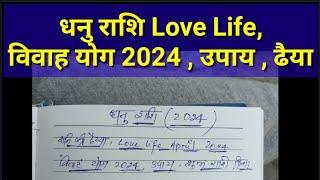 धनु राशि Love Life,
विवाह योग 2024 , उपाय , ढैया
धनु राशि (2024)
शनि की ढैय्या, Love life April 2024
विवाह योग 2024, उपाय